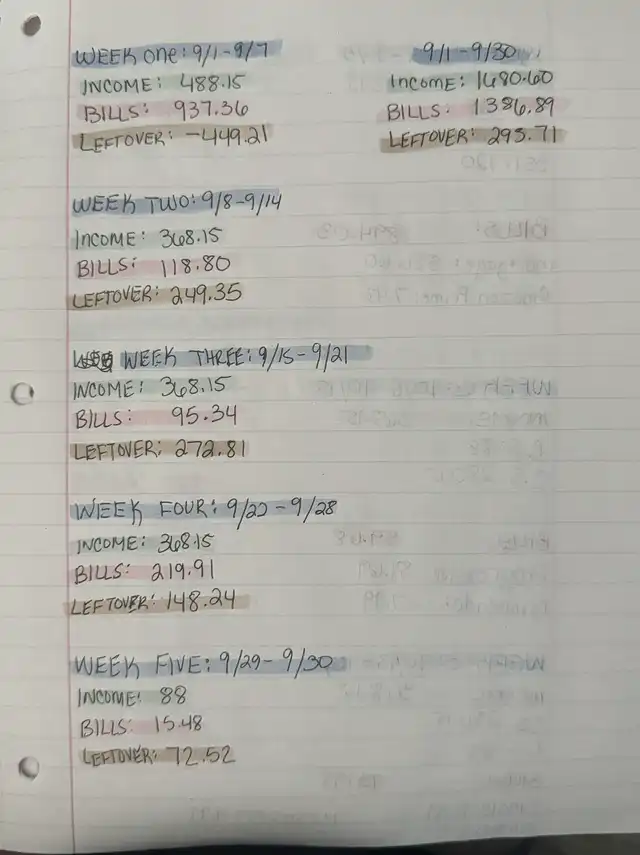 WEEK One: 9/1-9/7
INCOME: 488.15
BILLS: 937.36
LEFTOVER: -449.21
9/1-9/30
Income: 1680.60
BILLS: 1386.89
LEFTOVER: 293.71
WEEK TWO: 9/8-9/14
INCOME: 368.15
BILLS: 118.80
LEFTOVER: 249.35
WEEK THREE: 9/15-9/21
INCOME: 368.15
BILLS: 95.34
LEFTOVER: 272.81
WEEK FOUR: 9/22-9/28
INCOME: 368.15
BILLS: 219.91
LEFTOVER: 148.24
WEEK FIVE: 9/29-9/30
INCOME: 88
BILLS: 15.48
LEFTOVER: 72.52